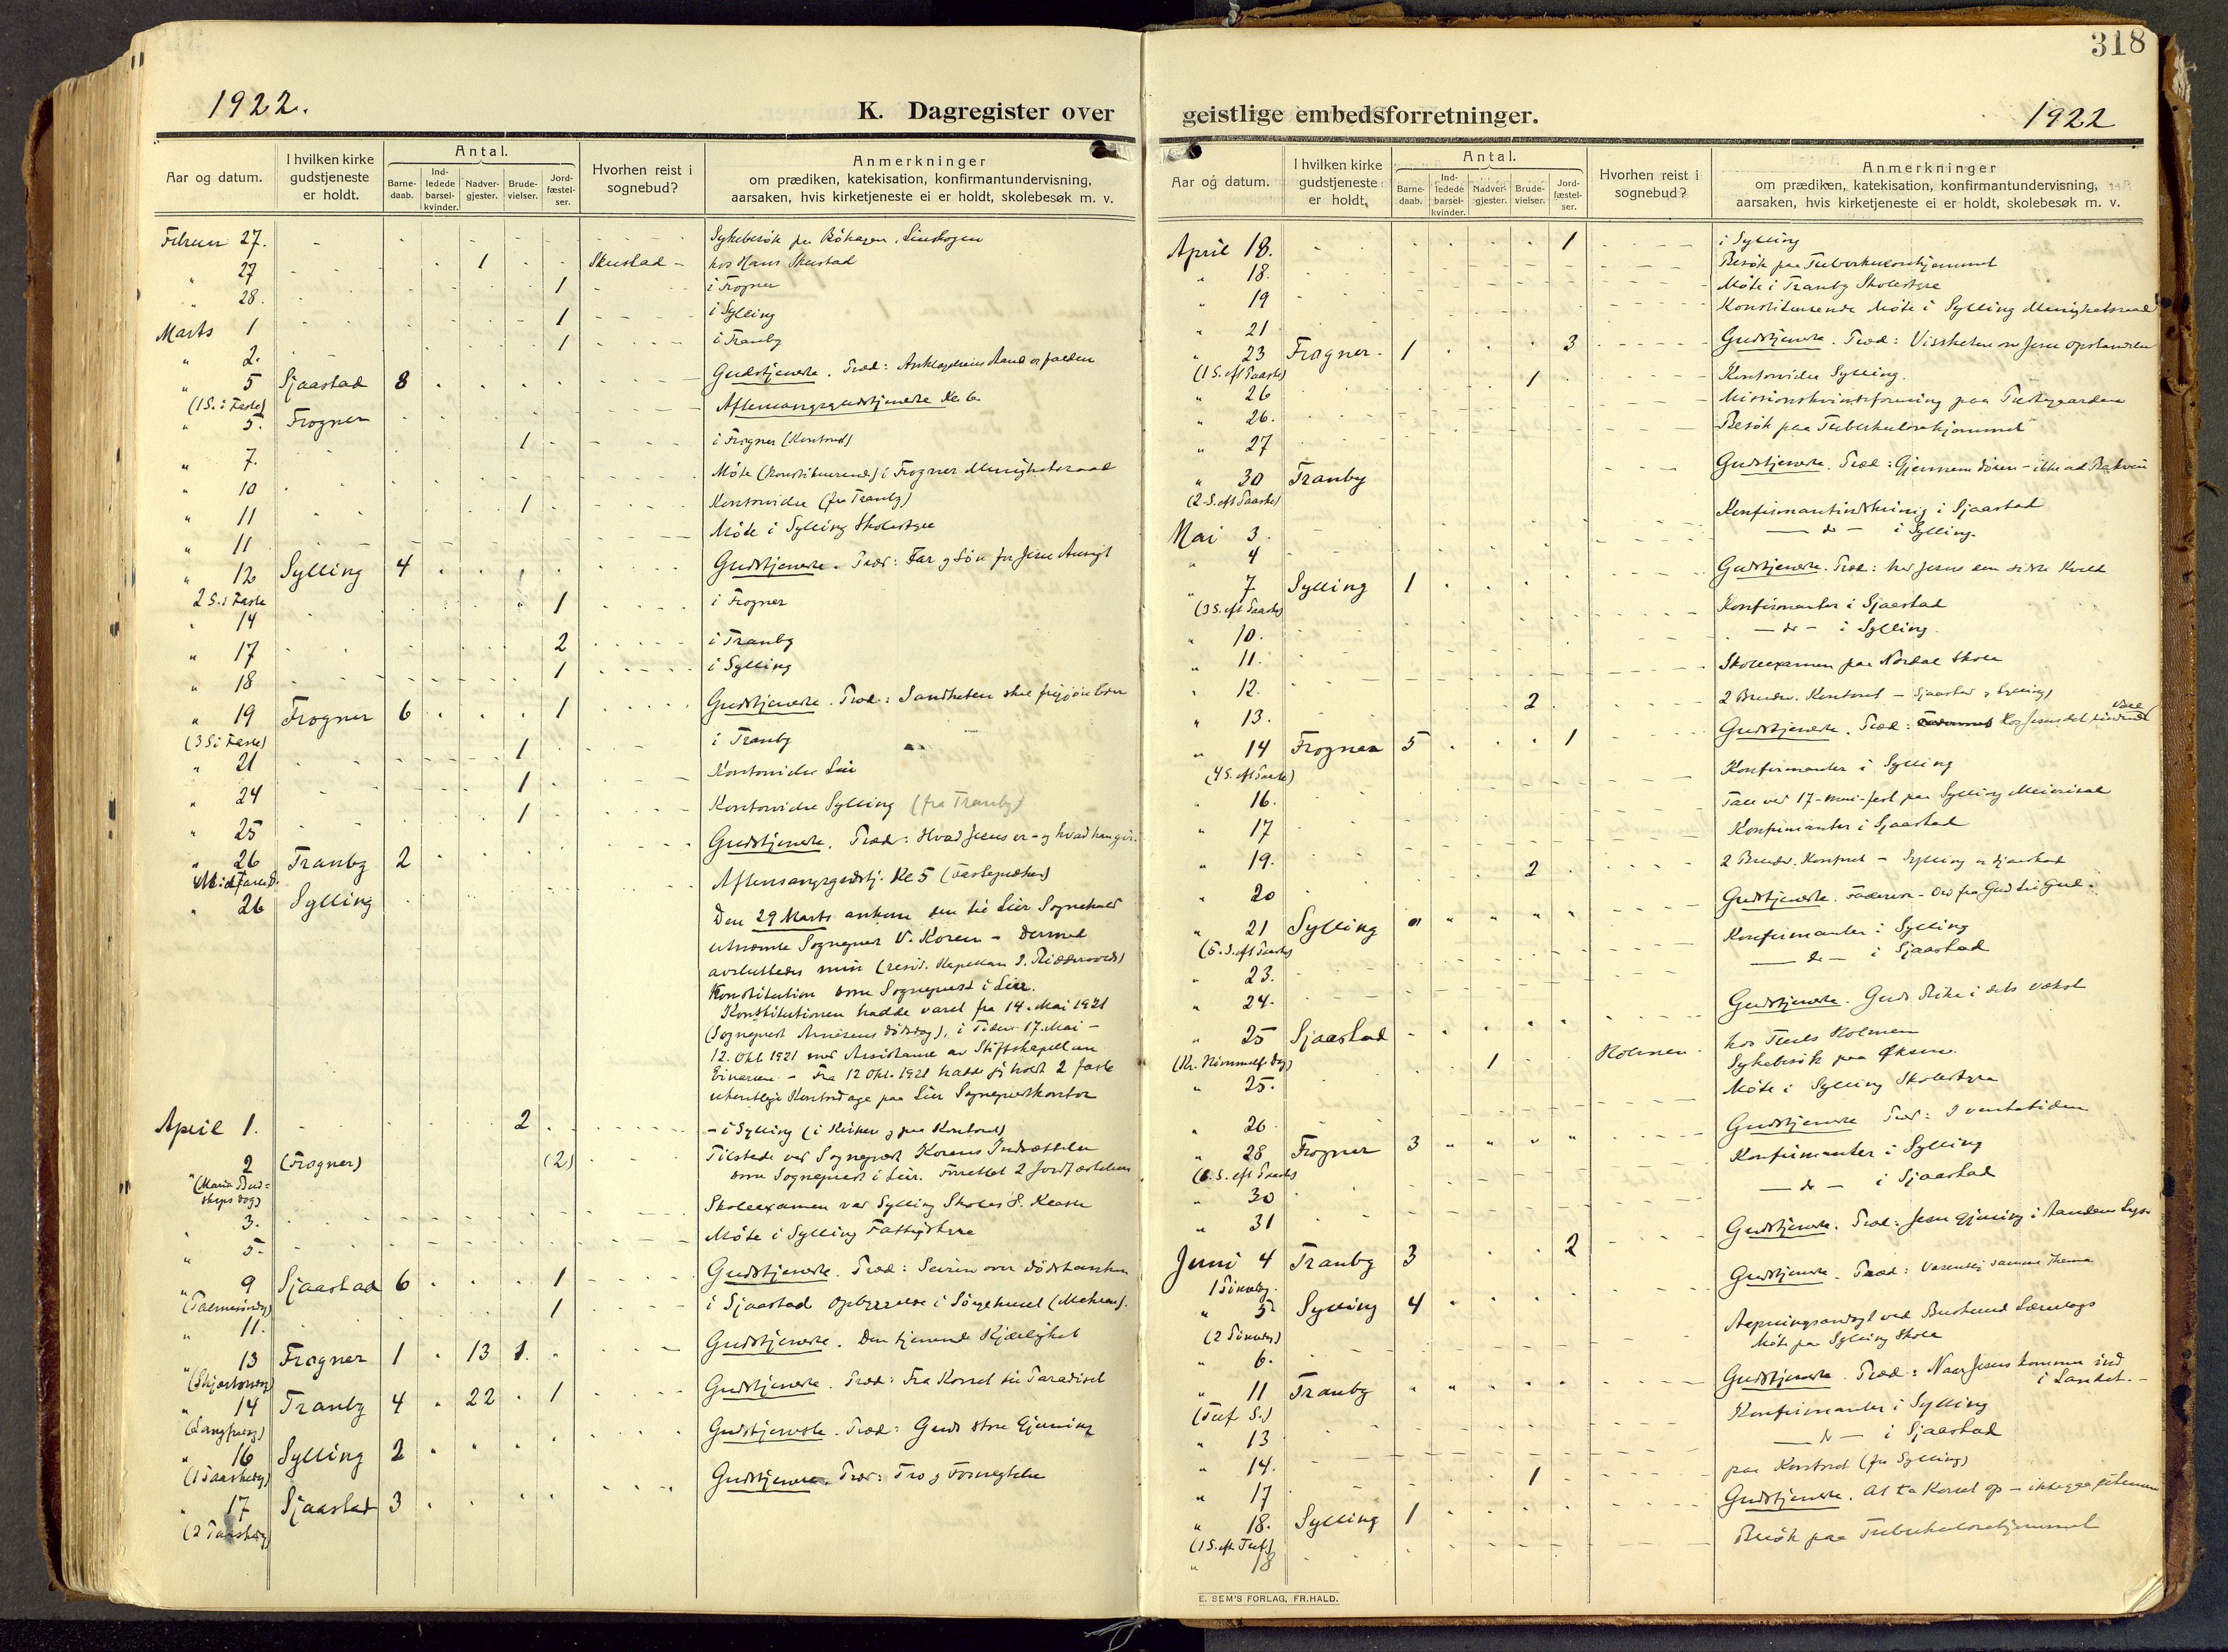 1922.
K. Dagregister over
Aar og datum.
I hvilken kirke gudstjeneste er holdt.
Antal.
Barne-daab.
Ind-ledede barsel-kvinder.
Nadver-gjester.
Brude-vielser.
Jord-fæstel-ser.
Hvorhen reist i sognebud?
Anmerkninger
om prædiken, katekisation, konfirmantundervisning,
aarsaken, hvis kirketjeneste ei er holdt, skolebesøk m. v.
Februar 27. Sykebesøk paa
" 27 1 Skustad - hos Hans Skustad
" 28. 1 i Frogner
Marts 1 1 i Sylling
" 2. 1 i Tranby
" 5 Sjaastad 8 Gudstjeneste. Præd:
(1 S. i Faste)
" 5. Frogner Aftensangsgudstjeneste Kl 6
" 7. 1 i Frogner (Kontoret)
" 10 Møte (Konstituerende) i Frogner Menighetsraad
" 11 1 (fra Tranby)
" 11 Møte i Sylling Skolestyre
" 12 Sylling 4 Gudstjeneste. Præd: Far og Søn for Jesu Ansigt
2 S. i Faste
" 14 1 i Frogner
" 17 2 i Tranby
" 18 1 i Sylling
" 19 Frogner 6 1 Gudstjeneste. Præd: Sandheten skal frigjøre Eder
(3 S i Faste)
" 21 1 i Tranby
" 24 1 Lier
" 25 1 Sylling (fra Tranby)
" 26 Tranby 2 Gudstjeneste. Præd: Hvad Jesus er - og hvad han gir.
" 26 Sylling Aftensangsgudstj. Kl 5
Den 29 Marts ankom den til Lier Sognekald
utnævnte Sogneprest V. Koren - dermed
avsluttedes min (resid. Kapellan J. Riddervolds)
Konstitution som Sogneprest i Lier.
Konstitutionen hadde varet fra 14. Mai 1921
(Sogneprest Arnesens dødsdag), i Tiden 17. Mai -
12. Okt. 1921 med Assistanse av Stiftskapellan
Einarsen - Fra 12 Okt. 1921 hadde jeg holdt 2 faste
ukentlige Kontordage paa Lier Sogneprestkontor
April 1. 2 - i Sylling (i Kirken og paa Kontoret)
" 2 (Frogner) (2) Tilstede ved Sogneprest Korens Indsættelse
(Maria Bud= som Sogneprest i Lier. Forrettet 2 Jordfæstelser
skaps dag)
" 3. Skoleexamen ved Sylling Skoles Klasse
" 5. Møte i Sylling Fattigstyre
" 9 Sjaastad 6 1 Gudstjeneste. Præd: Seiren over dødstanken
(Palmesøndag)
" 11. 1 i Sjaastad Opbyggelse i Sørgehuset
" 13 Frogner 1 13 1. Gudstjeneste. Den tjenende Kjærlighet
(Skjærtorsdag)
" 14 Tranby 4 22 1 Gudstjeneste. Præd: Fra Korset til Paradiset
(Langfredag)
" 16 Sylling 2 Gudstjeneste. Præd: Guds store Gjerning
(1 Paaskedag)
" 17 Sjaastad 3 Gudstjeneste. Præd: Tro og Fornegtelse
(2 Paaskedag)
318
geistlige embedsforretninger.
1922
Aar og datum.
I hvilken kirke gudstjeneste er holdt.
Antal.
Barne-daab.
Ind-ledede barsel-kvinder.
Nadver-gjester.
Brude-vielser.
Jord-fæstel-ser.
Hvorhen reist i sognebud?
Anmerkninger
om prædiken, katekisation, konfirmantundervisning,
aarsaken, hvis kirketjeneste ei er holdt, skolebesøk m. v.
April 18. 1 i Sylling
" 18. Besøk paa Tuberkulosehjemmet
" 19 Møte i Tranby Skolestyre
" 21 Konstituerende Møte i Sylling Menighetsraad
" 23 Frogner. 1 3 Gudstjeneste. Præd: Vissheten om Jesu Opstandelse
(1 S. eft Paaske)
" 26 1 Sylling.
" 26. Missionskvindeforening paa Prestegaarden
" 27 Besøk paa Tuberkulosehjemmet
" 30 Tranby Gudstjeneste. Præd: Gjennem døren - ikke ad Bakveien
(2 S. eft Paaske)
Mai 3. Konfirmantindskrivning i Sjaastad
" 4 - do - i Sylling.
" 7 Sylling 1 Gudstjeneste. Præd: hos Jesus den sidste Kveld
(3 S. eft Paaske)
" 10. Konfirmanter i Sjaastad
" 11. - do - i Sylling.
" 12. Skoleexamen paa Nordal Skole
" 13. 2 2 Brudev. Kontoret - Sjaastad og Sylling)
" 14 Frogner 5 1 Gudstjeneste. Præd:
(4 S. eft Paaske)
" 16. Konfirmanter i Sylling
" 17 Tale ved 17-mai-fest paa Sylling
" 19. Konfirmanter i Sjaastad
" 20 2 2 Brudev. Kontoret - Sylling og Sjaastad
" 21 Sylling " " " " " Gudstjeneste. Ord fra Gud til Gud.
(5. S. eft Paaske)
" 23. Konfirmanter i Sylling
" 24. - do - i Sjaastad
" 25 Sjaastad Gudstjeneste. Guds Rike i dets vækst
(Kr. Himmelf. Dag)
" 25. 1 Holmen. hos Holmen
Sykebesøk paa
" 26 Møte i Sylling Skolestyre
" 28 Frogner 3 " " " " Gudstjeneste Præd: I ventetiden
(6. S. eft Paaske)
" 30 Konfirmanter i Sylling
" 31 - do - i Sjaastad
Juni 4 Tranby 3 2 Gudstjeneste. Præd: Jesu Gjerning i Aandens Lys
1 Pinsedag.
" 5 Sylling 4 Gudstjeneste. Præd: Væsentlig samme Thema
(2 Pinsedag)
" 6. Aapningsandagt ved Buskerud Lærerlags
Møte paa Sylling Skole
" 11 Tranby Gudstjeneste. Præd: Naar Jesus kommer ind
i Landet. -
(Tref S.)
" 13 Konfirmanter i Sylling
" 14. - do - i Sjaastad
" 17 1 paa Kontoret (fra Sylling)
" 18. Sylling 1 Gudstjeneste. At ta Korset op -
(1 S. eft. Tref.)
" 18 Besøk paa Tuberkulosehjemmet
E. SEM'S FORLAG, FR.HALD.